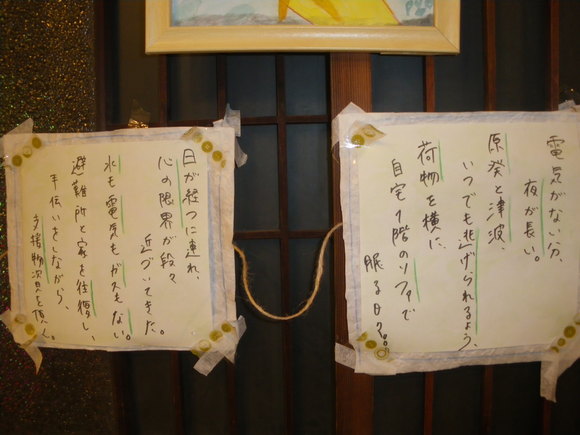 電気がない分、
夜が長い。
原発と津波、
いつでも逃げられるよう、
荷物を横に、
自宅1階のソファで
眠る日々。
日が経つに連れ、
心の限界が段々
近づいてきた。
水も電気もガスもない。
避難所と家を往復し、
手伝いをしながら、
支援物資を頂く。